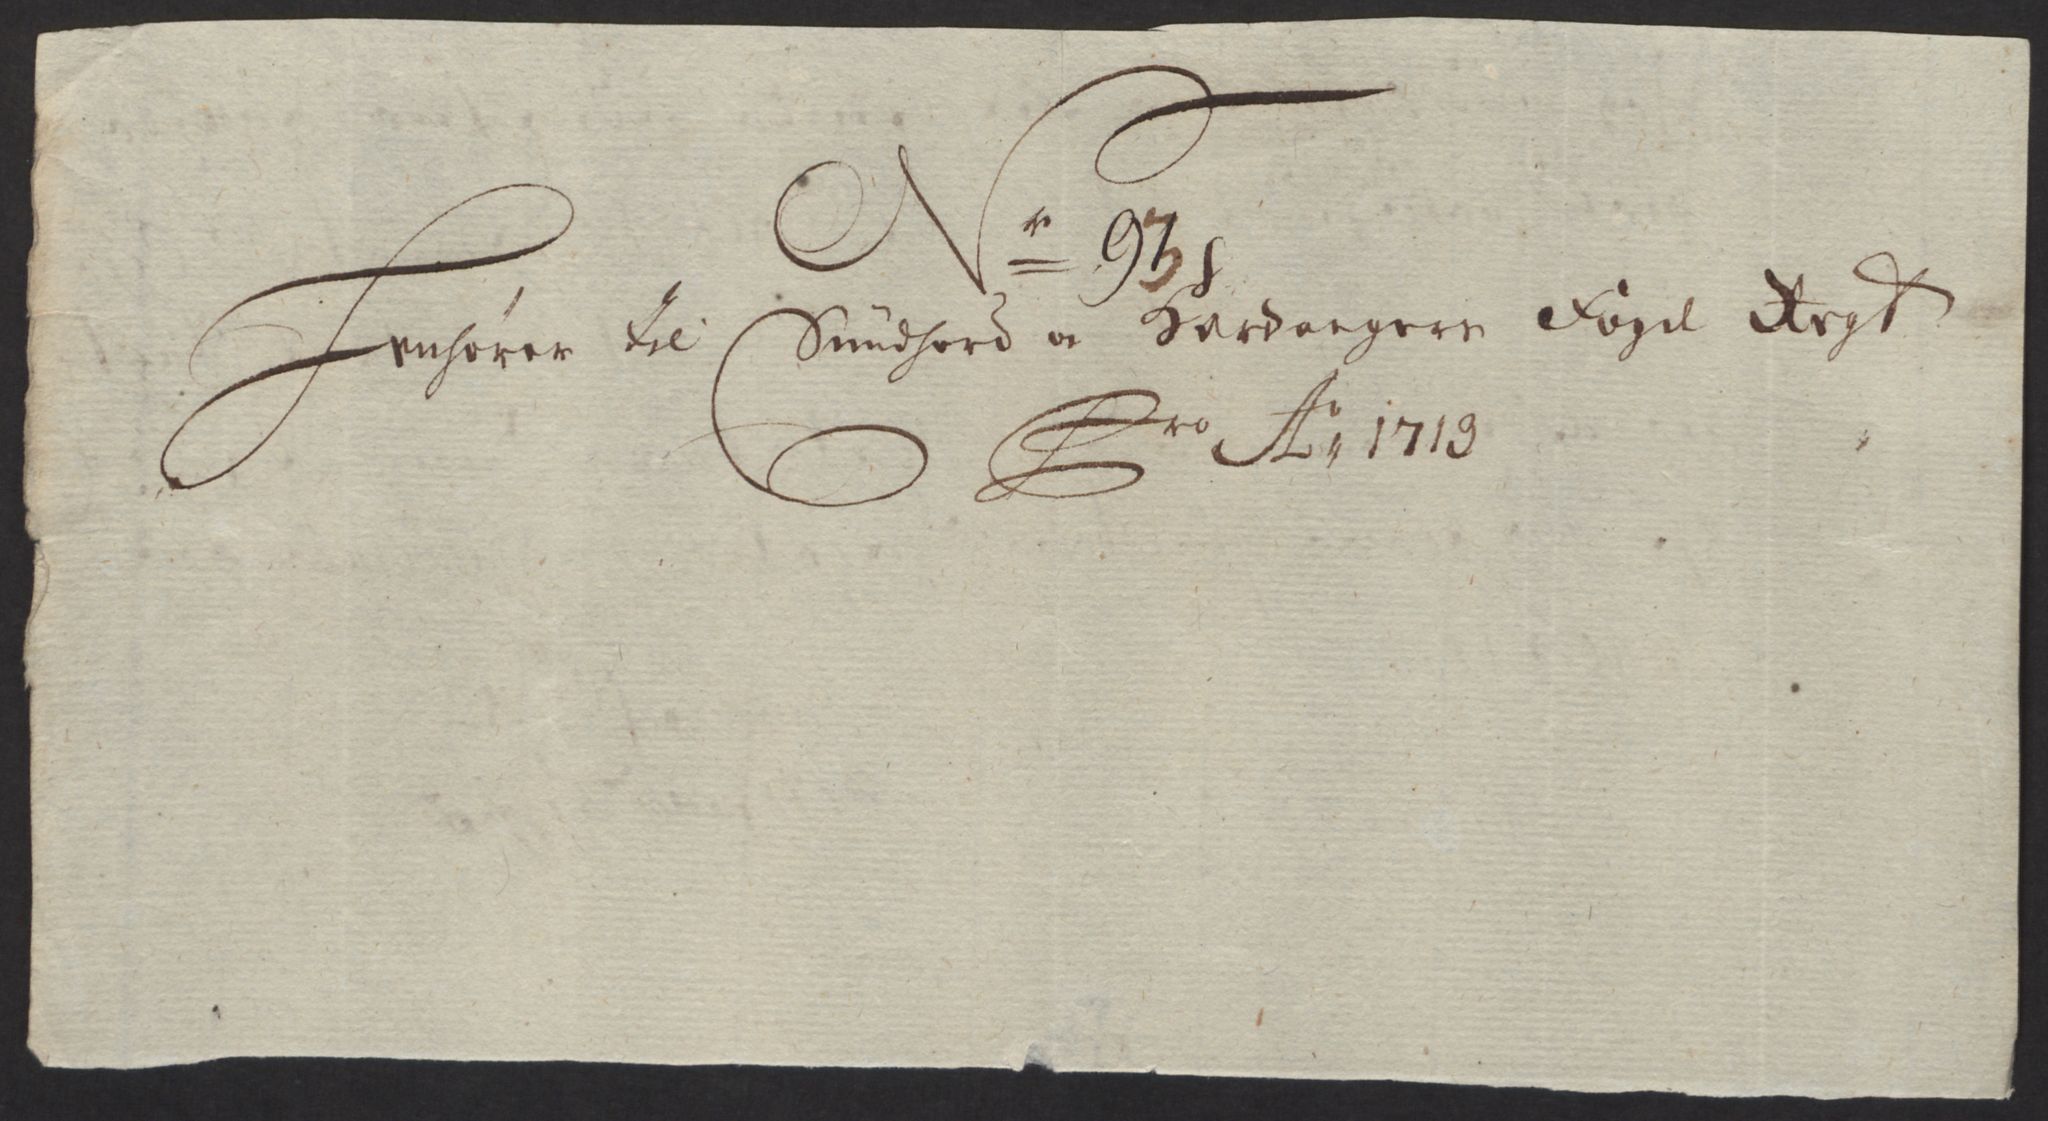 Nr 93
Henhører til Sundhord oc Hardangers Fogd Regt
Pro Ao 1713